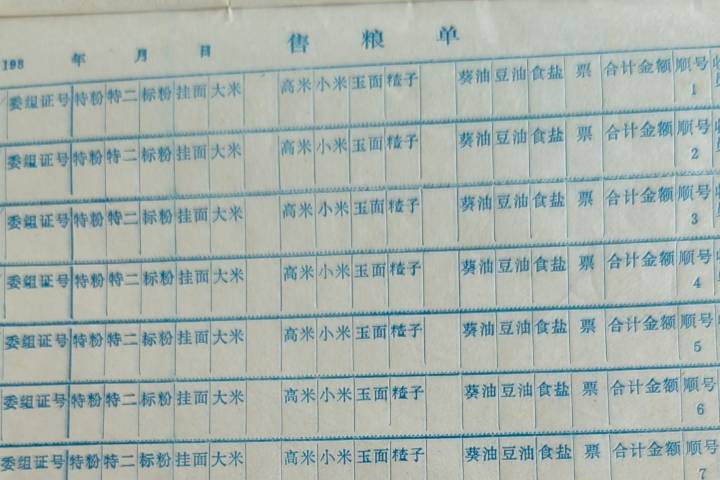 售粮单
198 年 月 日
委组证号 特粉 特二 标粉 挂面 大米 高米 小米 玉面 𥻗子 葵油 豆油 食盐 票 合计金额 顺号 1
委组证号 特粉 特二 标粉 挂面 大米 高米 小米 玉面 𥻗子 葵油 豆油 食盐 票 合计金额 顺号 2
委组证号 特粉 特二 标粉 挂面 大米 高米 小米 玉面 𥻗子 葵油 豆油 食盐 票 合计金额 顺号 3
委组证号 特粉 特二 标粉 挂面 大米 高米 小米 玉面 𥻗子 葵油 豆油 食盐 票 合计金额 顺号 4
委组证号 特粉 特二 标粉 挂面 大米 高米 小米 玉面 𥻗子 葵油 豆油 食盐 票 合计金额 顺号 5
委组证号 特粉 特二 标粉 挂面 大米 高米 小米 玉面 𥻗子 葵油 豆油 食盐 票 合计金额 顺号 6
委组证号 特粉 特二 标粉 挂面 大米 高米 小米 玉面 𥻗子 葵油 豆油 食盐 票 合计金额 顺号 7